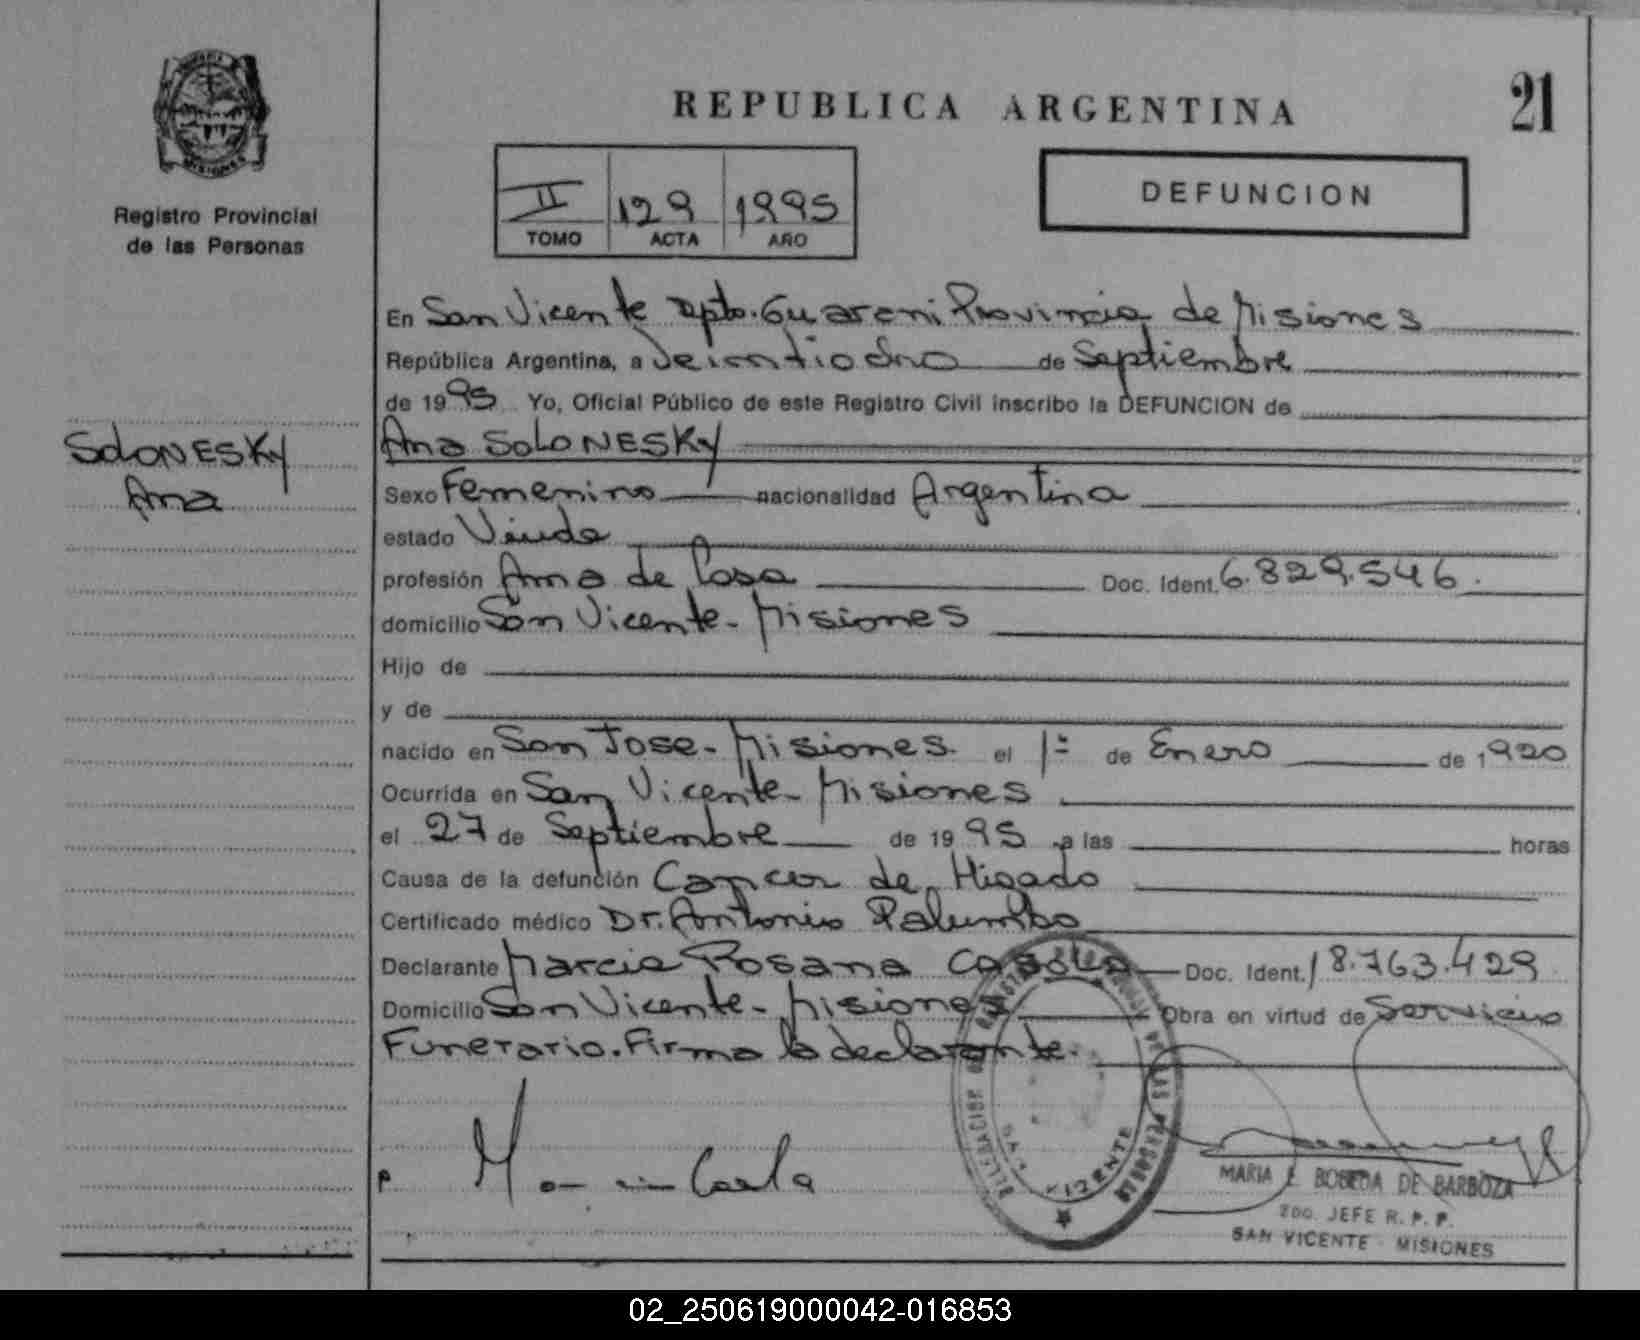 REPUBLICA ARGENTINA
21
MISIONES
Registro Provincial
de las Personas
II 129 1995
TOMO ACTA AÑO
DEFUNCION
En San Vicente Dpto. Guarani Provincia de Misiones
República Argentina, a Veintiocho de Septiembre
de 1995 Yo, Oficial Público de este Registro Civil inscribo la DEFUNCION de
SOLONESKY
Ana
Ana SOLONESKY
Sexo Femenino nacionalidad Argentina
estado Viuda
profesión Ama de Casa Doc. Ident. 6.829.546.
domicilio San Vicente - Misiones
Hijo de
y de
nacido en San Jose - Misiones. el 1º de Enero de 1920
Ocurrida en San Vicente - Misiones
el 27 de Septiembre de 1995 a las horas
Causa de la defunción Cancer de Higado
Certificado médico Dr. Antonio Palumbo
Declarante Marcia Rosana Doc. Ident. 18.763.429
Domicilio San Vicente - Misiones Obra en virtud de Servicio
Funerario. Firma la declarante.
SAN VICENTE
MARIA E. BOBEDA DE BARBOZA
2DO. JEFE R. P. P.
SAN VICENTE - MISIONES
02_250619000042-016853